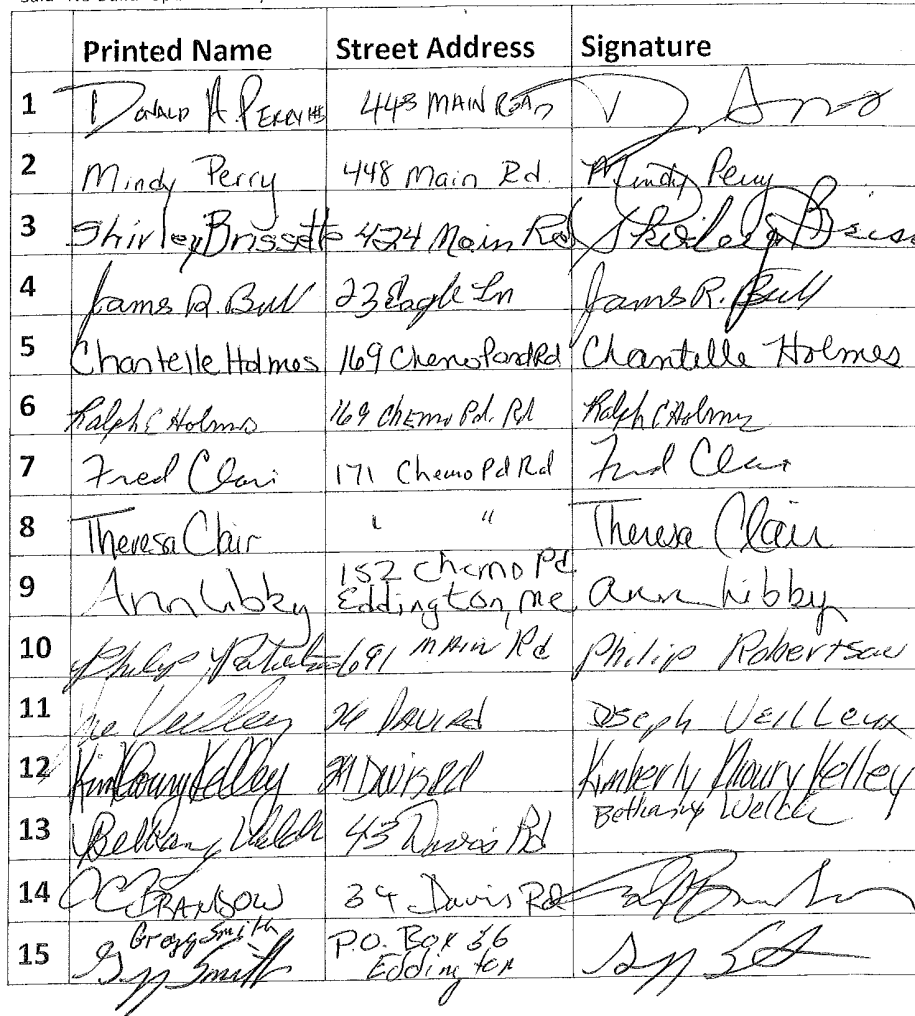 Printed Name Street Address Signature
1 Donald A. Perry III 448 Main Road
2 Mindy Perry 448 Main Rd. Mindy Perry
3 Shirley Brissette 424 Main Rd Shirley Briss
4 James R. Bull 23 Eagle Ln James R. Bull
5 Chantelle Holmes 169 Chemo Pond Rd Chantelle Holmes
6 Ralph C Holmes 169 Chemo Pd. Rd Ralph C Holmes
7 Fred Clair 171 Chemo Pd Rd Fred Clair
8 Theresa Clair " " Theresa Clair
9 Ann Libby 152 Chemo Pd Ann Libby
Eddington, me
10 Philip Robertson 691 Main Rd Philip Robertson
11 Joe Veilleux Joseph Veilleux
12 Kim Khoury Kelley Davis Rd Kimberly Khoury Kelley
13 Bethany Welch 43 Davis Rd Bethany Welch
14 34 Davis Rd
15 Gregg Smith P.O. Box 36
Gregg Smith Eddington